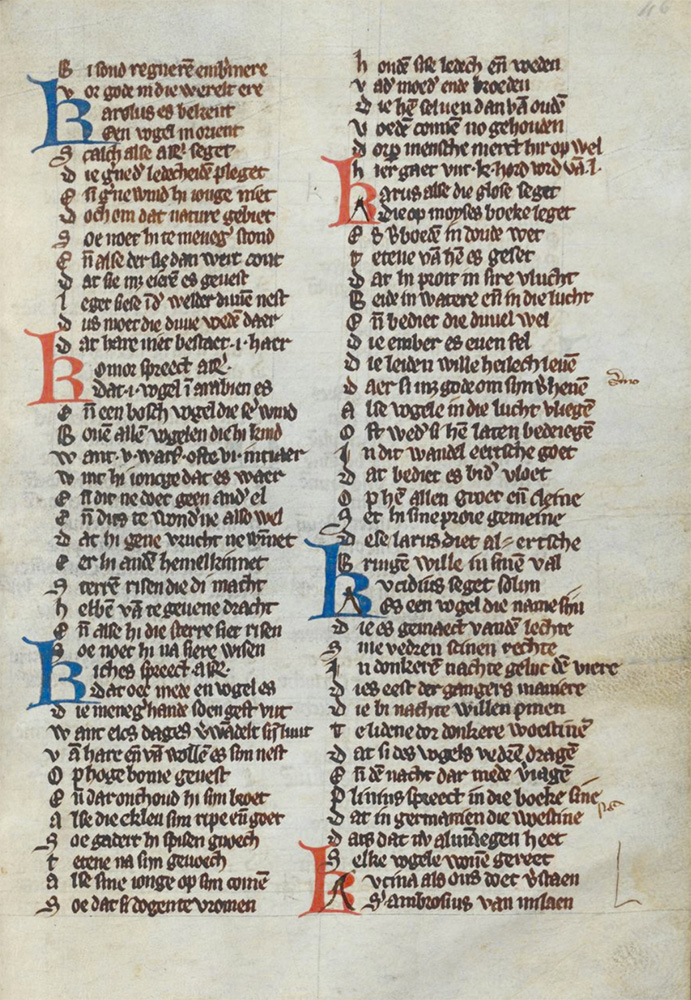 46
B i sond regnerē emb̄mere
v or gode in die werelt ere
Karolus es bekent
Een vogel in orient
S calch alse arꝰ. seget
D ie gn̄ed ledecheide pleget
E ñ gn̄e wind hi ionge niet
D och om dat nature gebiet
S oe moet hi te meneḡ stond
E ñ alse der sie dan wert cont
D at sie mz eierē es gevest
L eget siese īd welder duuen nest
D us moet die duue wedē daer
D at hare niet bestaet .i. haer
Komor spreect arꝰ.
Dat .i. vogel ī arabien es
E ñ een bosch vogel die sē wīnd
B ouē allē vogelen die hi kind
W ant .v. warf. ofte .vi. int iaer
W int hi iongē dat es waer
E ñ dit ne doet geen and̄ el
E ñ dus te wond̄ne also wel
D at hi gene vrucht ne wīnet
E er hi andē hemel kīnnet
S terrē risen die di macht
h ebbē vā te geuene dracht
E ñ alse hi die sterre siet risen
S oe noet hi na siere wisen
Kiches spreect arꝰ.
Dat oec mede en vogel es
D ie meneḡhande stoen geft vut
W ant elcs dages v̄wādelt sijn luut
V ā hare eñ vā wollē es sijn nest
O p hoge bome gevest
E ñ dar onthoud hi sijn broet
A lse die ekelen sijn ripe eñ goet
S oe gadert hi spisen gnoech
T etene na sijn gevoech
A lse sine ionge op sijn comē
S oe dat si dogen te vromen
h oudē sise ledech eñ weden
V ad̄ moed̄ ende broeden
D ie hē seluen dan vā oudē
V oedē connē no gehouden
D orp̄ mensche merct hir op wel
h ier gaet vut .k. hord word vā .l.
Larus alse die glose seget
Die op moyses boeke leget
E s v̄boedē in doude wet
T etene vā hē es geset
D at hi proit in sire vlucht
B eide in watere eñ in die lucht
E ñ bediet die duuel wel
D ie ember es euen fel
D ie leiden wille heilech leuē
D aer si mz gode om sijn v̄heuē
A lse vogele in die lucht vliegē
O ft wed̄ si hē laten bedriegē
I n dit wandel eertsche goet
D at bediet es bid̄ vloet
O p hē allen groet eñ cleine
S et hi sine proie gemeine
D ese larus diet al eertsche
B ringē wille in sinē val
Lucidius seget solijn
Es een vogel die name sijn
D ie es gemaect vandē lechte
S ine vedren scinen rechte
I n donkerē nachte gelijc dē viere
D ies eest der gangers maniere
D ie bi nachte willen pinen
T e lidene dor donkere woestinē
D at si des vogels vedrē dragē
E ñ dē nacht dar mede vragē
P linius spreect in die boeke sine
D at in germanien die westine
D ats dat nv almāegen heet
S elke vogele wonē gereet
Lucina als ons doet v̄staen
S̄ ambrosius van milaen